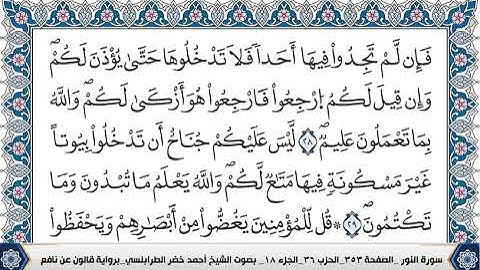 فَإِن لَّمْ تَجِدُوا۟ فِيهَا أَحَداٗ فَلَا تَدْخُلُوهَا حَتَّىٰ يُؤْذَنَ لَكُمْۖ
وَإِن قِيلَ لَكُمُ اُ۪رْجِعُوا۟ فَارْجِعُوا۟ هُوَ أَزْكَىٰ لَكُمْۖ وَاللَّهُ
بِمَا تَعْمَلُونَ عَلِيمٞۖ ٢٨ لَّيْسَ عَلَيْكُمْ جُنَاحٌ أَن تَدْخُلُوا۟ بِيُوتاً
غَيْرَ مَسْكُونَةٖ فِيهَا مَتَٰعٞ لَّكُمْۖ وَاللَّهُ يَعْلَمُ مَا تُبْدُونَ وَمَا
تَكْتُمُونَۖ ٢٩ ۞ قُل لِّلْمُؤْمِنِينَ يَغُضُّوا۟ مِنْ أَبْصَٰرِهِمْ وَيَحْفَظُوا۟
سورة النور _الصفحة ٣٥٣_ الحزب ٣٦_ الجزء ١٨_ بصوت الشيخ أحمد خضر الطرابلسي_ برواية قالون عن نافع